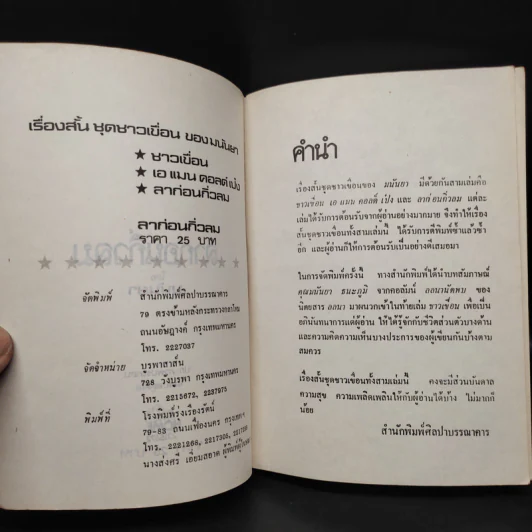 เรื่องสั้น ชุดชาวเขื่อน ของ มนันยา
★ ชาวเขื่อน
★ เอ แมน คอลด์ เป๋ง
★ ลาก่อนกิ่วลม
ลาก่อนกิ่วลม
ราคา 25 บาท
จัดพิมพ์ สำนักพิมพ์ศิลปาบรรณาคาร
79 ตรงข้ามหลังกระทรวงกลาโหม
ถนนอัษฎางค์ กรุงเทพมหานคร
โทร. 2227037
จัดจำหน่าย บูรพาสาส์น
728 วังบูรพา กรุงเทพมหานคร
โทร. 2215672, 2237975
พิมพ์ที่ โรงพิมพ์รุ่งเรืองรัตน์
79-83 ถนนเฟื่องนคร กรุงเทพฯ
โทร. 2221268, 2217305,
นางส่งศรี เอี่ยมสอาด
คำนำ
เรื่องสั้นชุดชาวเขื่อนของ มนันยา มีด้วยกันสามเล่มคือ
ชาวเขื่อน เอ แมน คอลด์ เป๋ง และ ลาก่อนกิ่วลม แต่ละ
เล่มได้รับการต้อนรับจากผู้อ่านอย่างมากมาย จึงทำให้เรื่อง
สั้นชุดชาวเขื่อนทั้งสามเล่มนี้ ได้รับการตีพิมพ์ซ้ำแล้วซ้ำ
อีก และผู้อ่านก็ให้การต้อนรับเป็นอย่างดีเสมอมา
ในการจัดพิมพ์ครั้งนี้ ทางสำนักพิมพ์ได้นำบทสัมภาษณ์
คุณมนันยา ธนะภูมิ จากคอลัมน์ ออนานัดพบ ของ
นิตยสาร ออนา มาผนวกเข้าในท้ายเล่ม ชาวเขื่อน เพื่อเป็น
อภินันทนาการแด่ผู้อ่าน ให้ได้รู้จักกับชีวิตส่วนตัวบางด้าน
และความคิดความเห็นบางประการของผู้เขียนกันบ้างตาม
สมควร
เรื่องสั้นชุดชาวเขื่อนทั้งสามเล่มนี้ คงจะมีส่วนบันดาล
ความสุข ความเพลิดเพลินให้กับผู้อ่านได้บ้าง ไม่มากก็
น้อย
สำนักพิมพ์ศิลปาบรรณาคาร